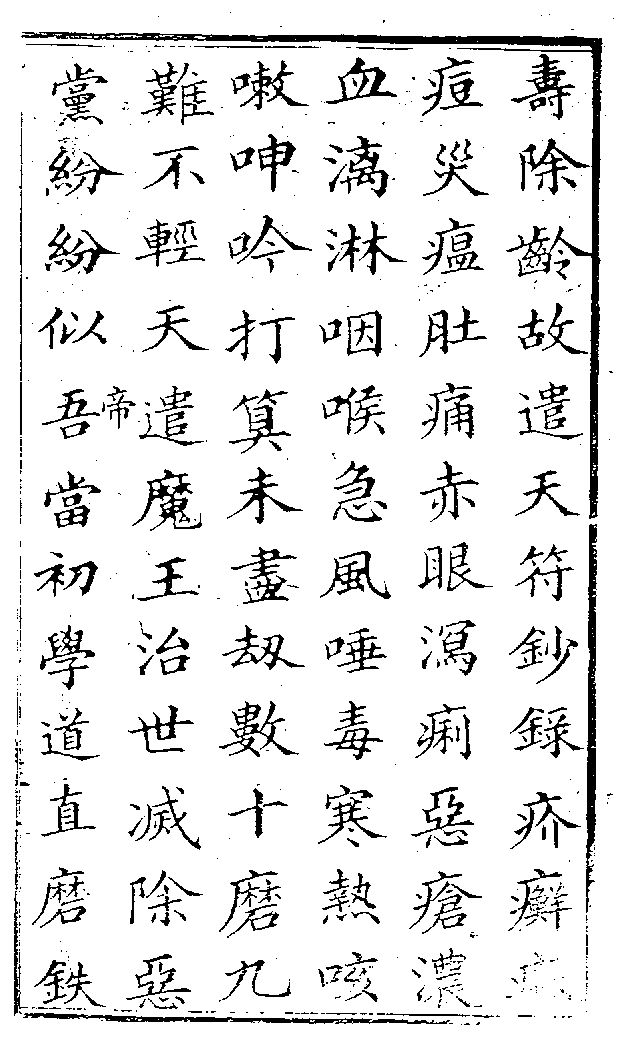 壽除齡故遣天符鈔錄疥癬
痘災瘟肚痛赤眼瀉痢惡瘡濃
血漓淋咽喉急風唾毒寒熱咳
嗽呻吟打算未盡刼數十磨九
難不輕天遣魔王治世滅除惡
帝
黨紛紛似吾當初學道直磨鉄